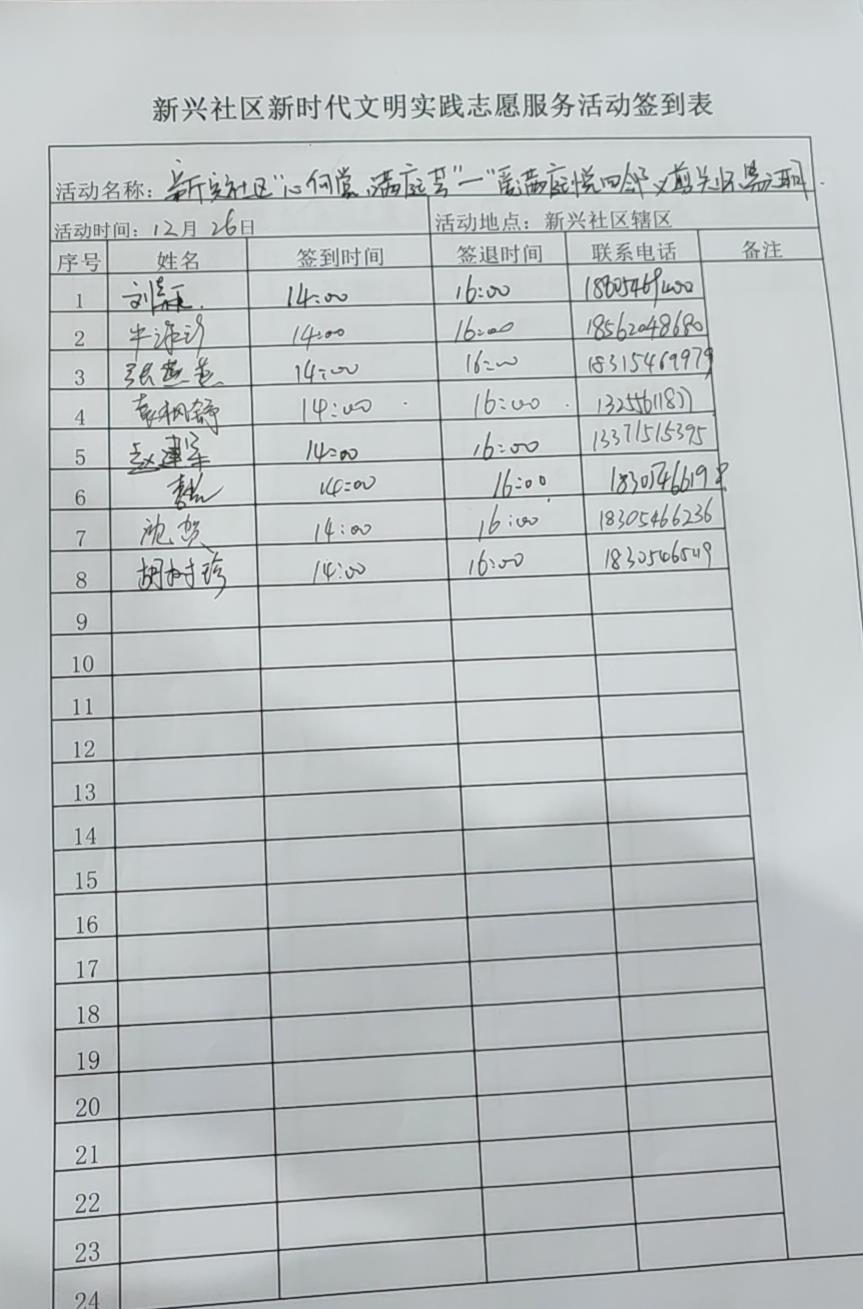 新兴社区新时代文明实践志愿服务活动签到表
活动名称：新兴社区“心何尝、满庭芳”一“爱满庭悦四邻 义剪关怀暖
活动时间：12月 26日 活动地点：新兴社区辖区
序号 姓名 签到时间 签退时间 联系电话 备注
1 刘 14:00 16:00
2 牛 14:00 16:00 18562048680
3 张 14:00 16:00 18315469979
4 袁 14:00 16:00
5 赵建军 14:00 16:00 13371515395
6 14:00 16:00
7 沈贺 14:00 16:00 18305466236
8 胡树珍 14:00 16:00
9
10
11
12
13
14
15
16
17
18
19
20
21
22
23
24